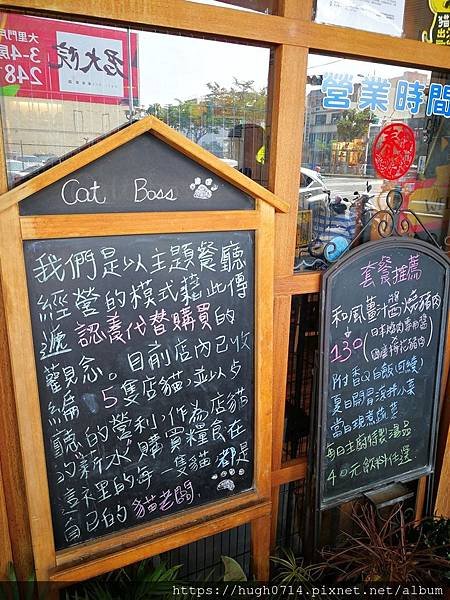 大里門
3-4房
248
君大院
營業時間
春
Cat Boss
我們是以主題餐廳
經營的模式藉此傳
遞 認養代替購買的
觀念。目前店內已收
編 5隻店貓,並以占
廳的營利,作為店貓
的薪水,購買糧食在
這裡的每一隻貓 都是
自己的 貓老闆.
套餐推薦
和風薑汁醬燒豬肉
130
附香Q白飯(可續)
夏日開胃涼拌小菜
當日現煮蔬菜
每日主廚特製湯品
40元飲料任選
https://hugh0714.pixnet.net/album